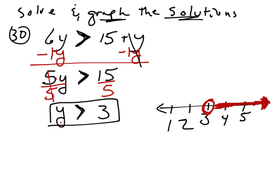 Solve & graph the Solutions
30 6y > 15 + y
-1y -1y
5y > 15
5 5
y > 3
1 2 3 4 5